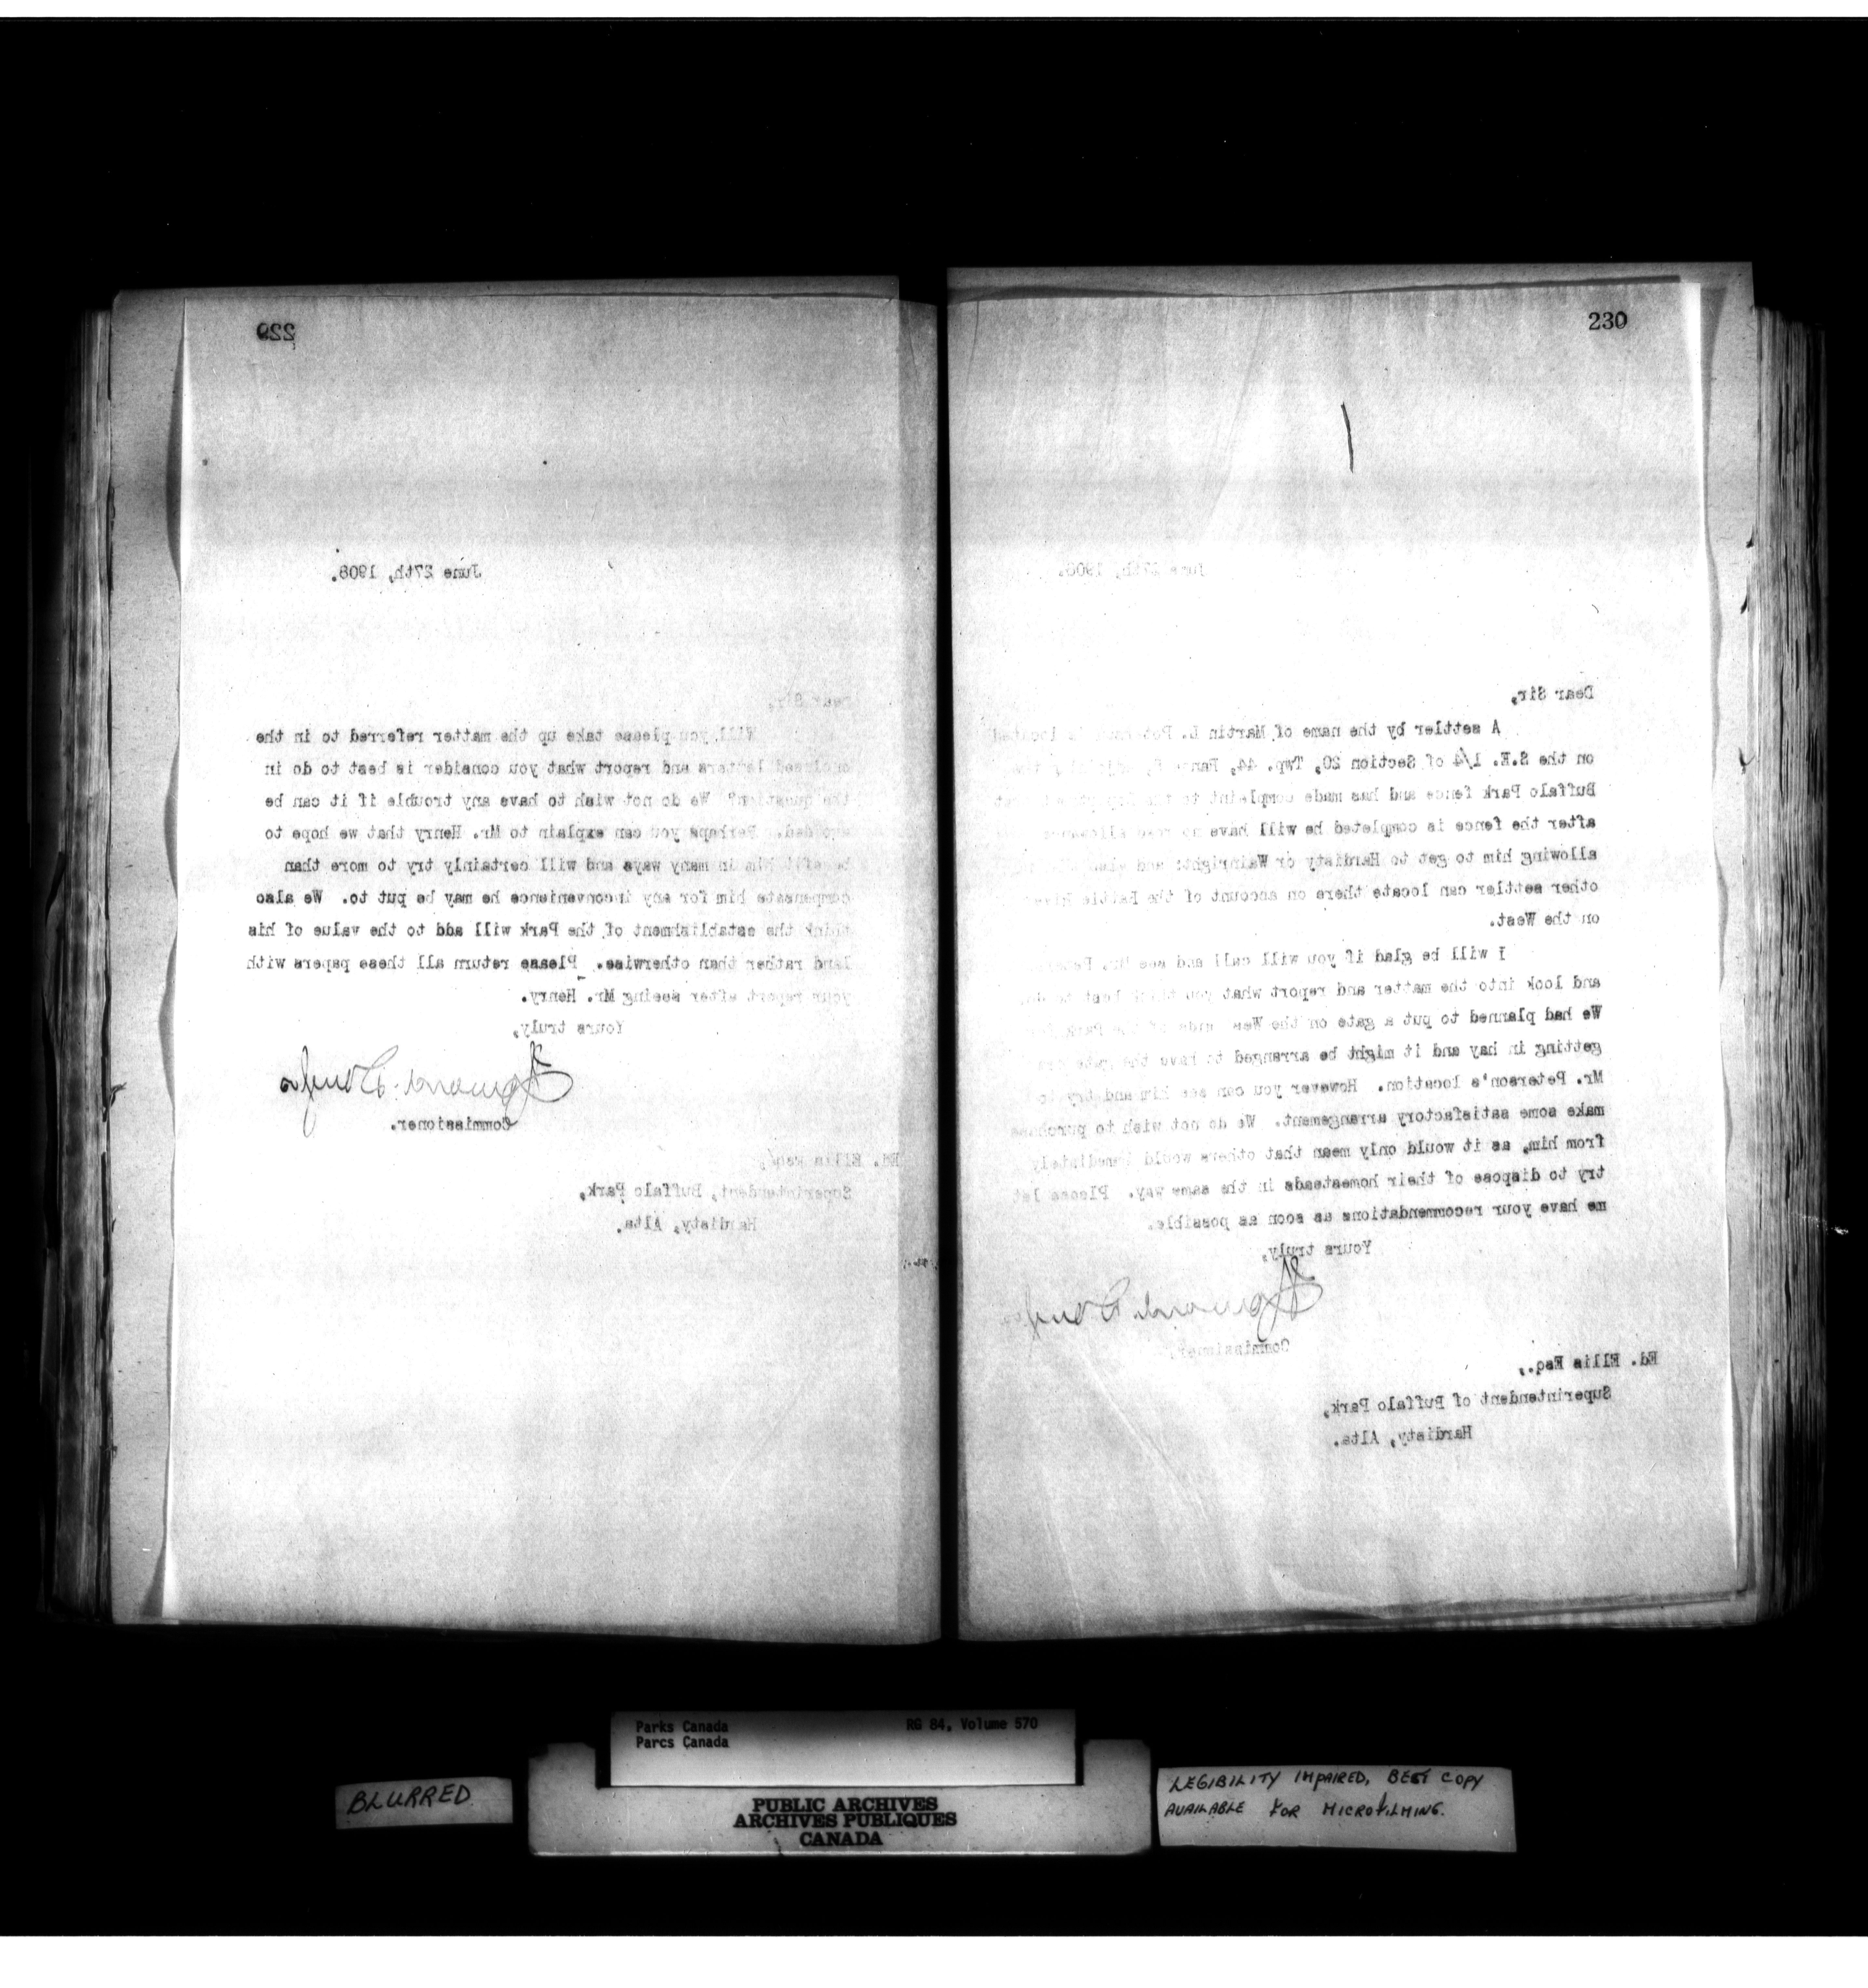 229
June 27th, 1908.
Dear Sir,
Will you please take up the matter referred to in the
enclosed letters and report what you consider is best to do in
the question? We do not wish to have any trouble if it can be
avoided. Perhaps you can explain to Mr. Henry that we hope to
benefit him in many ways and will certainly try to more than
compensate him for any inconvenience he may be put to. We also
think the establishment of the Park will add to the value of his
land rather than otherwise. Please return all these papers with
your report after seeing Mr. Henry.
Yours truly,
Commissioner.
Ed. Ellis Esq.,
Superintendent, Buffalo Park,
Hardisty, Alta.
230
June 27th, 1908.
Dear Sir,
A settler by the name of Martin L. located
on the S.E. 1/4 of Section 20, Twp. 44, Range
Buffalo Park fence and has made complaint to the
after the fence is completed he will have no road allowance
allowing him to get to Hardisty or Wainright; and
other settler can locate there on account of the Battle River
on the West.
I will be glad if you will call and see Mr.
and look into the matter and report what you think best to do.
We had planned to put a gate on the West side of the Park
getting in hay and it might be arranged to have the gate
Mr. Peterson's location. However you can see him and try to
make some satisfactory arrangement. We do not wish to purchase
from him, as it would only mean that others would immediately
try to dispose of their homesteads in the same way. Please let
me have your recommendations as soon as possible.
Yours truly,
Commissioner.
Ed. Ellis Esq.,
Superintendent of Buffalo Park,
Hardisty, Alta.
Parks Canada
Parcs Canada
RG 84, Volume 570
BLURRED
PUBLIC ARCHIVES
ARCHIVES PUBLIQUES
CANADA
LEGIBILITY IMPAIRED, BEST COPY
AVAILABLE FOR MICROFILMING.